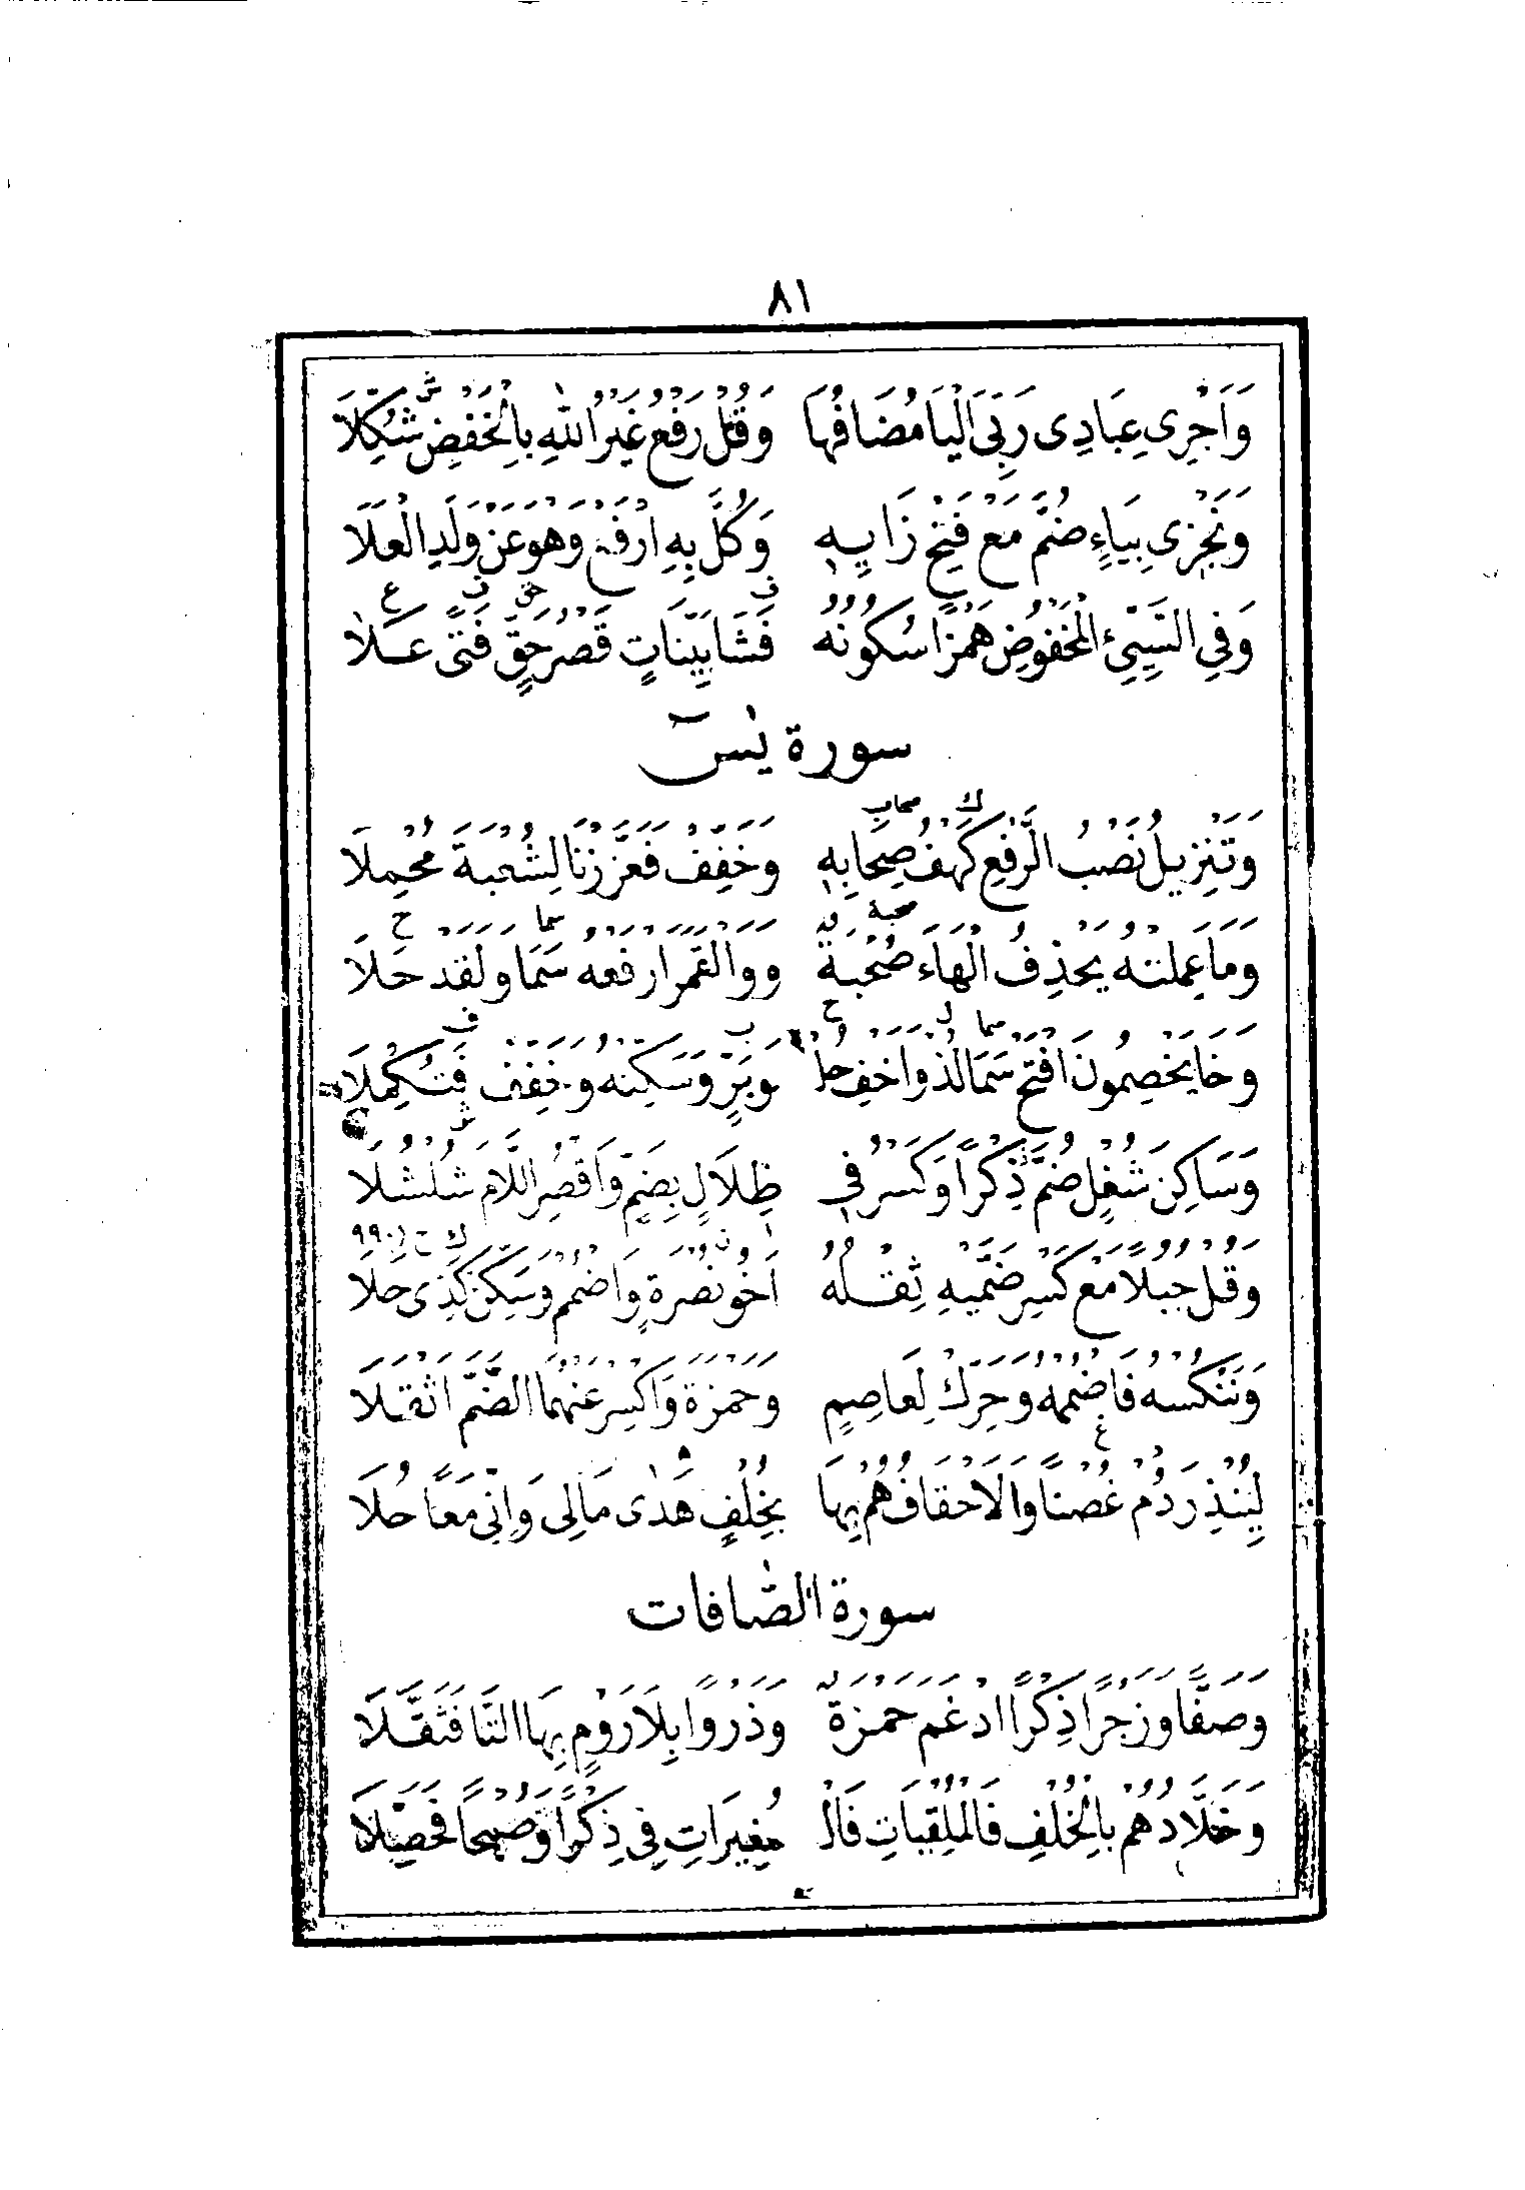 ٨١
وَأَجْرِى عِبَادِى رَبِّىَ الْيَا مُضَافُهَا وَقُلْ رَفْعُ غَيْرُ اللهِ بِالْخَفْضِ شُكِّلَا
وَنَجْزِى بِيَاءٍ ضُمَّ مَعْ فَتْحِ زَايِهِ وَكُلَّ بِهِ ارْفَعْ وَهُوَ عَنْ وَلَدِ الْعَلَا
وَفِى السَّيِّئِ الْمَخْفُوضِ هَمْزًا سُكُونُهُ فَشَا بَيِّنَاتٍ قَصْرُ حَقٍّ فَتًى عَلَا
سورة يٰسٓ
وَتَنْزِيلُ نَصْبُ الرَّفْعِ كَهْفُ صِحَابِهِ وَخَفِّفْ فَعَزَّزْنَا لِشُعْبَةَ مُحْمِلَا
وَمَا عَمِلَتْهُ يَحْذِفُ الْهَاءَ صُحْبَةٌ وَوَالْقَمَرَ ارْفَعْهُ سَمَا وَلَقَدْ حَلَا
وَخَا يَخْصِمُونَ افْتَحْ سَمَا لُذْ وَاخْفِ حُلْ وَبَرٍّ وَسَكِّنْهُ وَخَفِّفْ فَتُكْمِلَا
وَسَاكِنَ شُغْلٍ ضُمَّ ذِكْرًا وَكَسْرُ فِى ظِلَالٍ بِضَمٍّ وَاقْصُرِ اللَّامَ شُلْشُلَا
وَقُلْ جُبُلًا مَعْ كَسْرِ ضَمَّيْهِ ثِقْلُهُ أَخُو نُصْرَةٍ وَاضْمُمْ وَسَكِّنْ كَذِى حَلَا
وَنَنْكُسْهُ فَاضْمُمْهُ وَحَرِّكْ لِعَاصِمٍ وَحَمْزَةَ وَاكْسِرْ عَنْهُمَا الضَّمَّ أَثْقَلَا
لِيُنْذِرَ دُمْ غُصْنًا وَالْأَحْقَافُ هُمْ بِهَا بِخُلْفٍ هَدٰى مَالِى وَإِنِّى مَعًا حُلَا
سورة الصّٰافات
وَصَفًّا وَزَجْرًا ذِكْرًا ادْغَمَ حَمْزَةٌ وَذَرْوًا بِلَا رَوْمٍ بِهَا التَّا فَثَقَّلَا
وَخَلَّادُهُمْ بِالْخُلْفِ فَالْمُلْقِيَاتِ فَالْ مُغِيرَاتِ فِى ذِكْرًا وَصُبْحًا فَحَصِّلَا